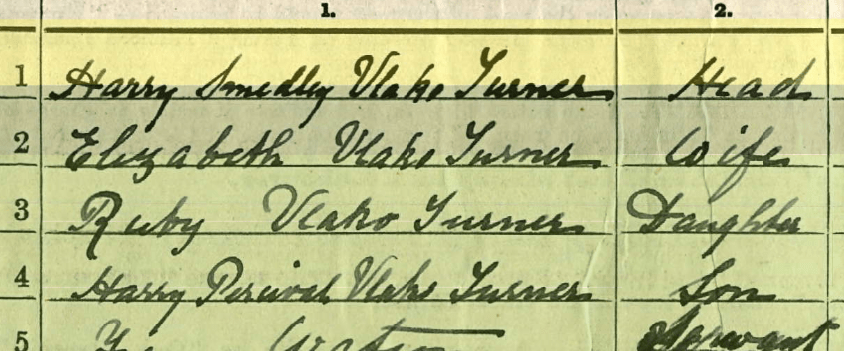 1. 2.
1 Harry Smedley Vlako Turner Head
2 Elizabeth Vlako Turner Wife
3 Ruby Vlako Turner Daughter
4 Harry Percival Vlako Turner Son
5 Servant